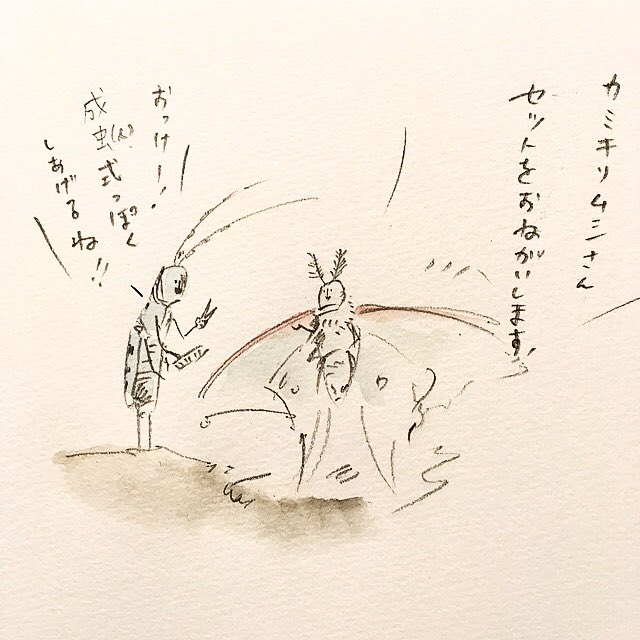 カミキリムシさん
セットをおねがいします。
おっけー！
成虫(人)式っぽく
しあげるね!!